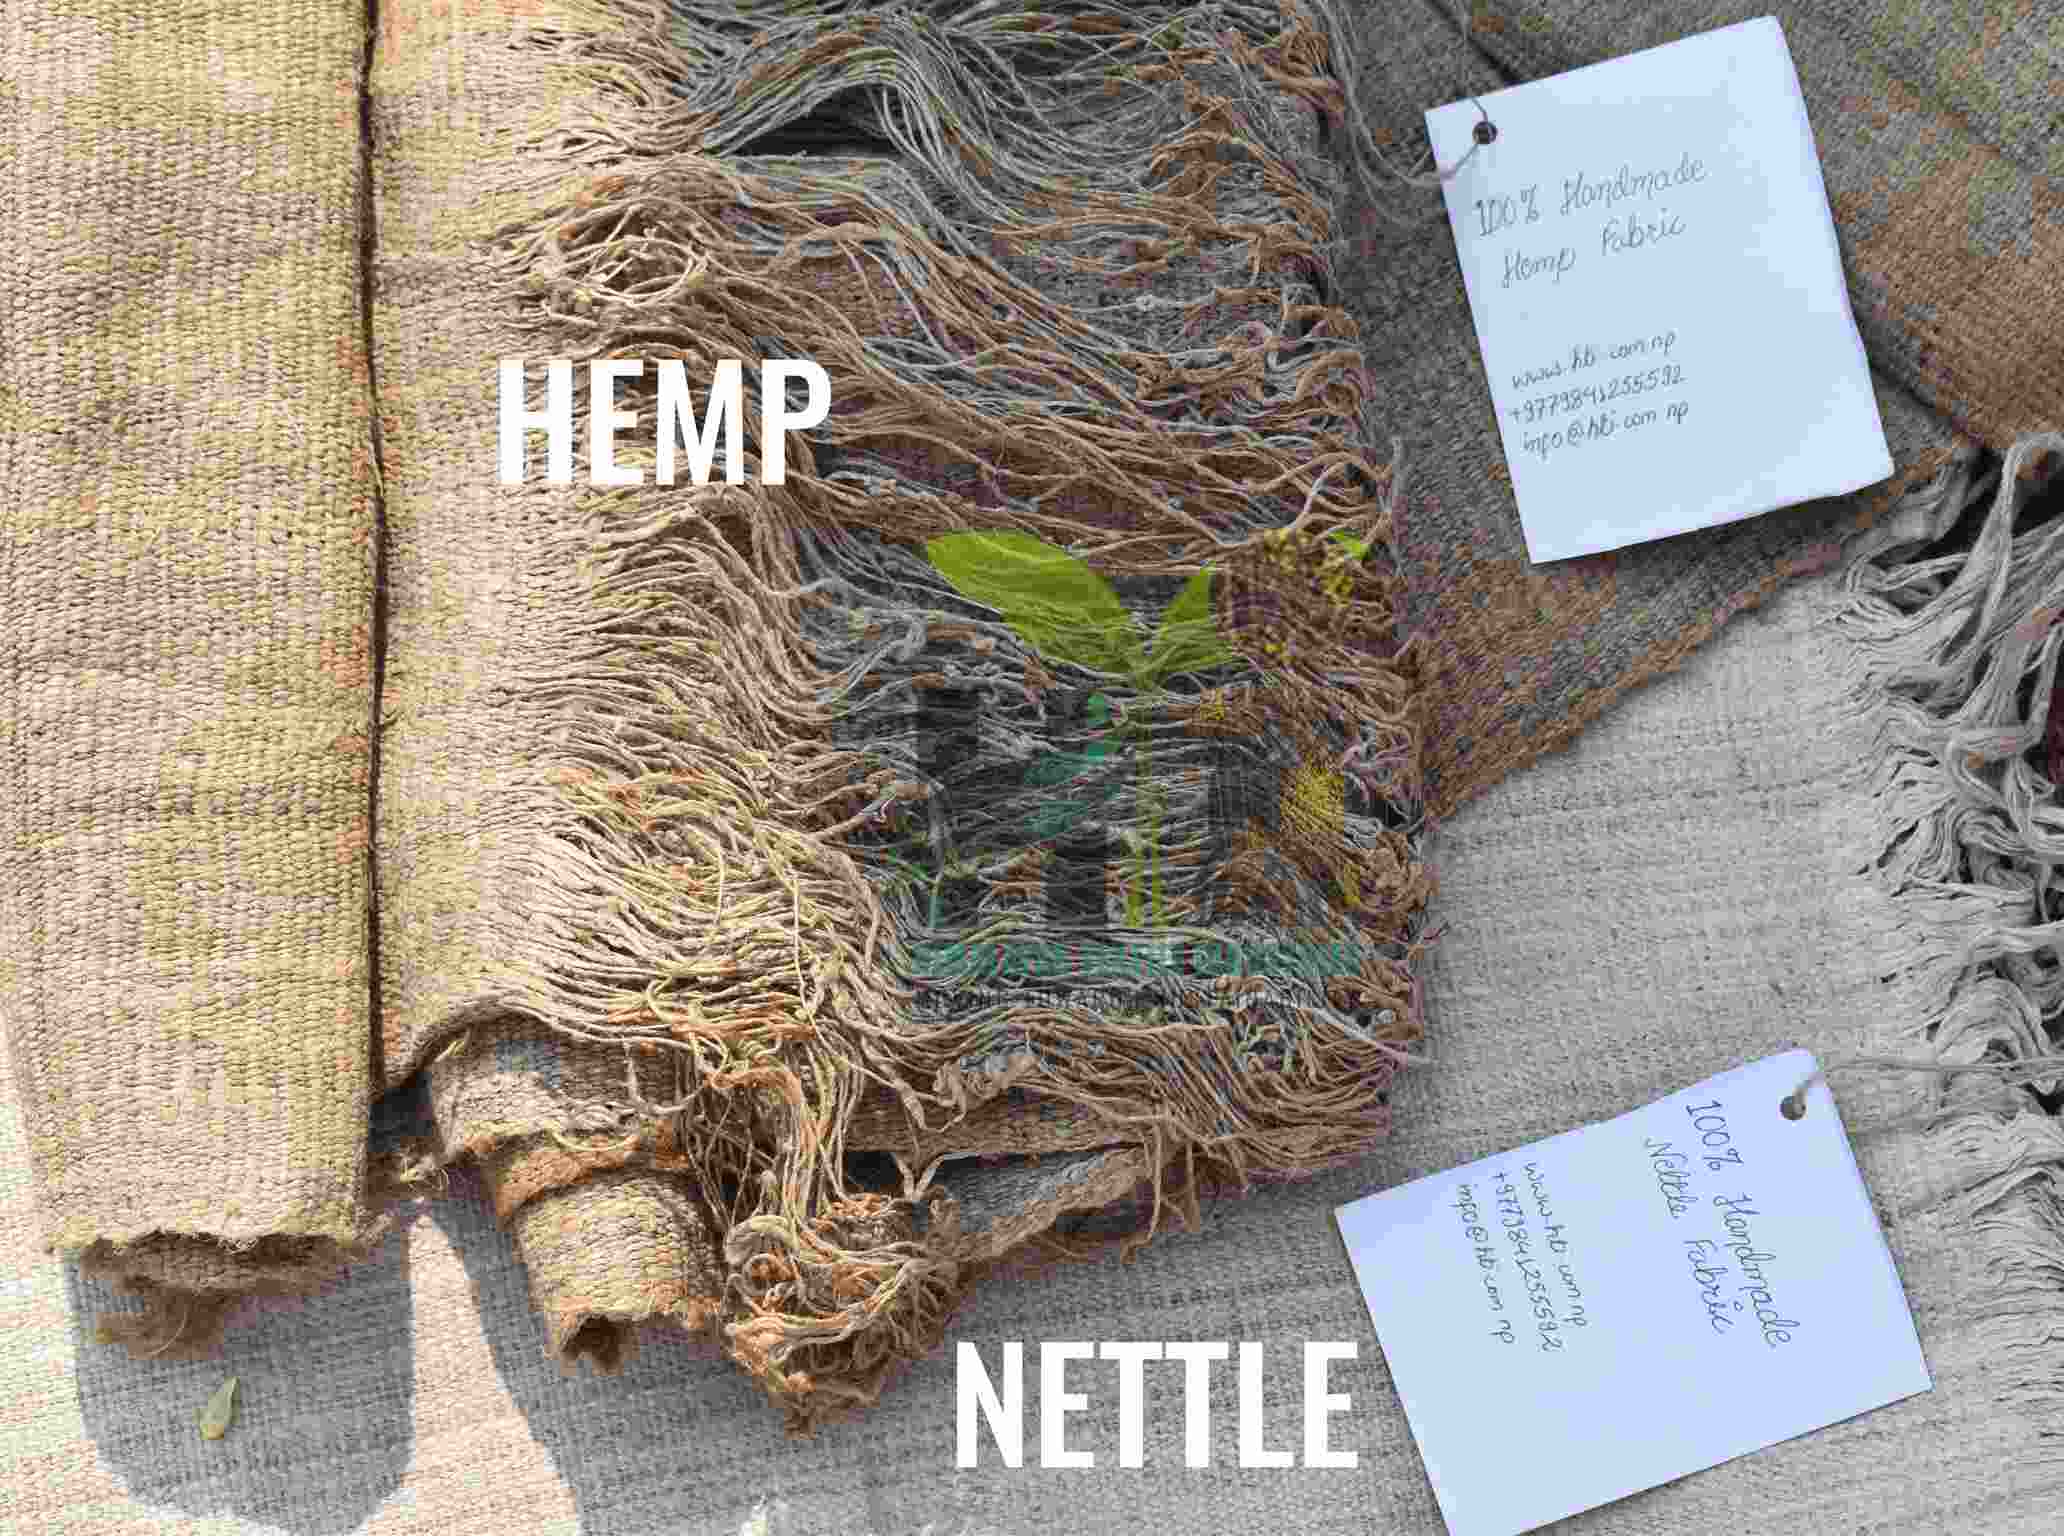 100% Handmade
Hemp Fabric
www.hti.com.np
+9779841255592
info@hti.com.np
HEMP
100% Handmade
Nettle Fabric
www.hti.com.np
+9779841255592
info@hti.com.np
NETTLE